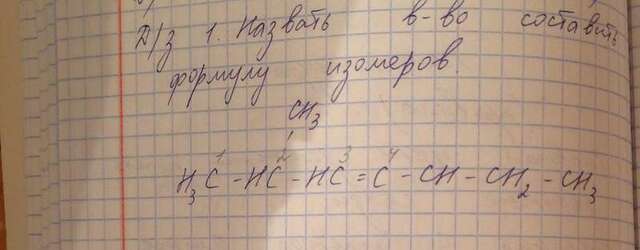 Д/з 1. Назвать в-во составить
формулу изомеров.
CH₃
1 2 3 4
H₃C - HC - HC = C - CH - CH₂ - CH₃